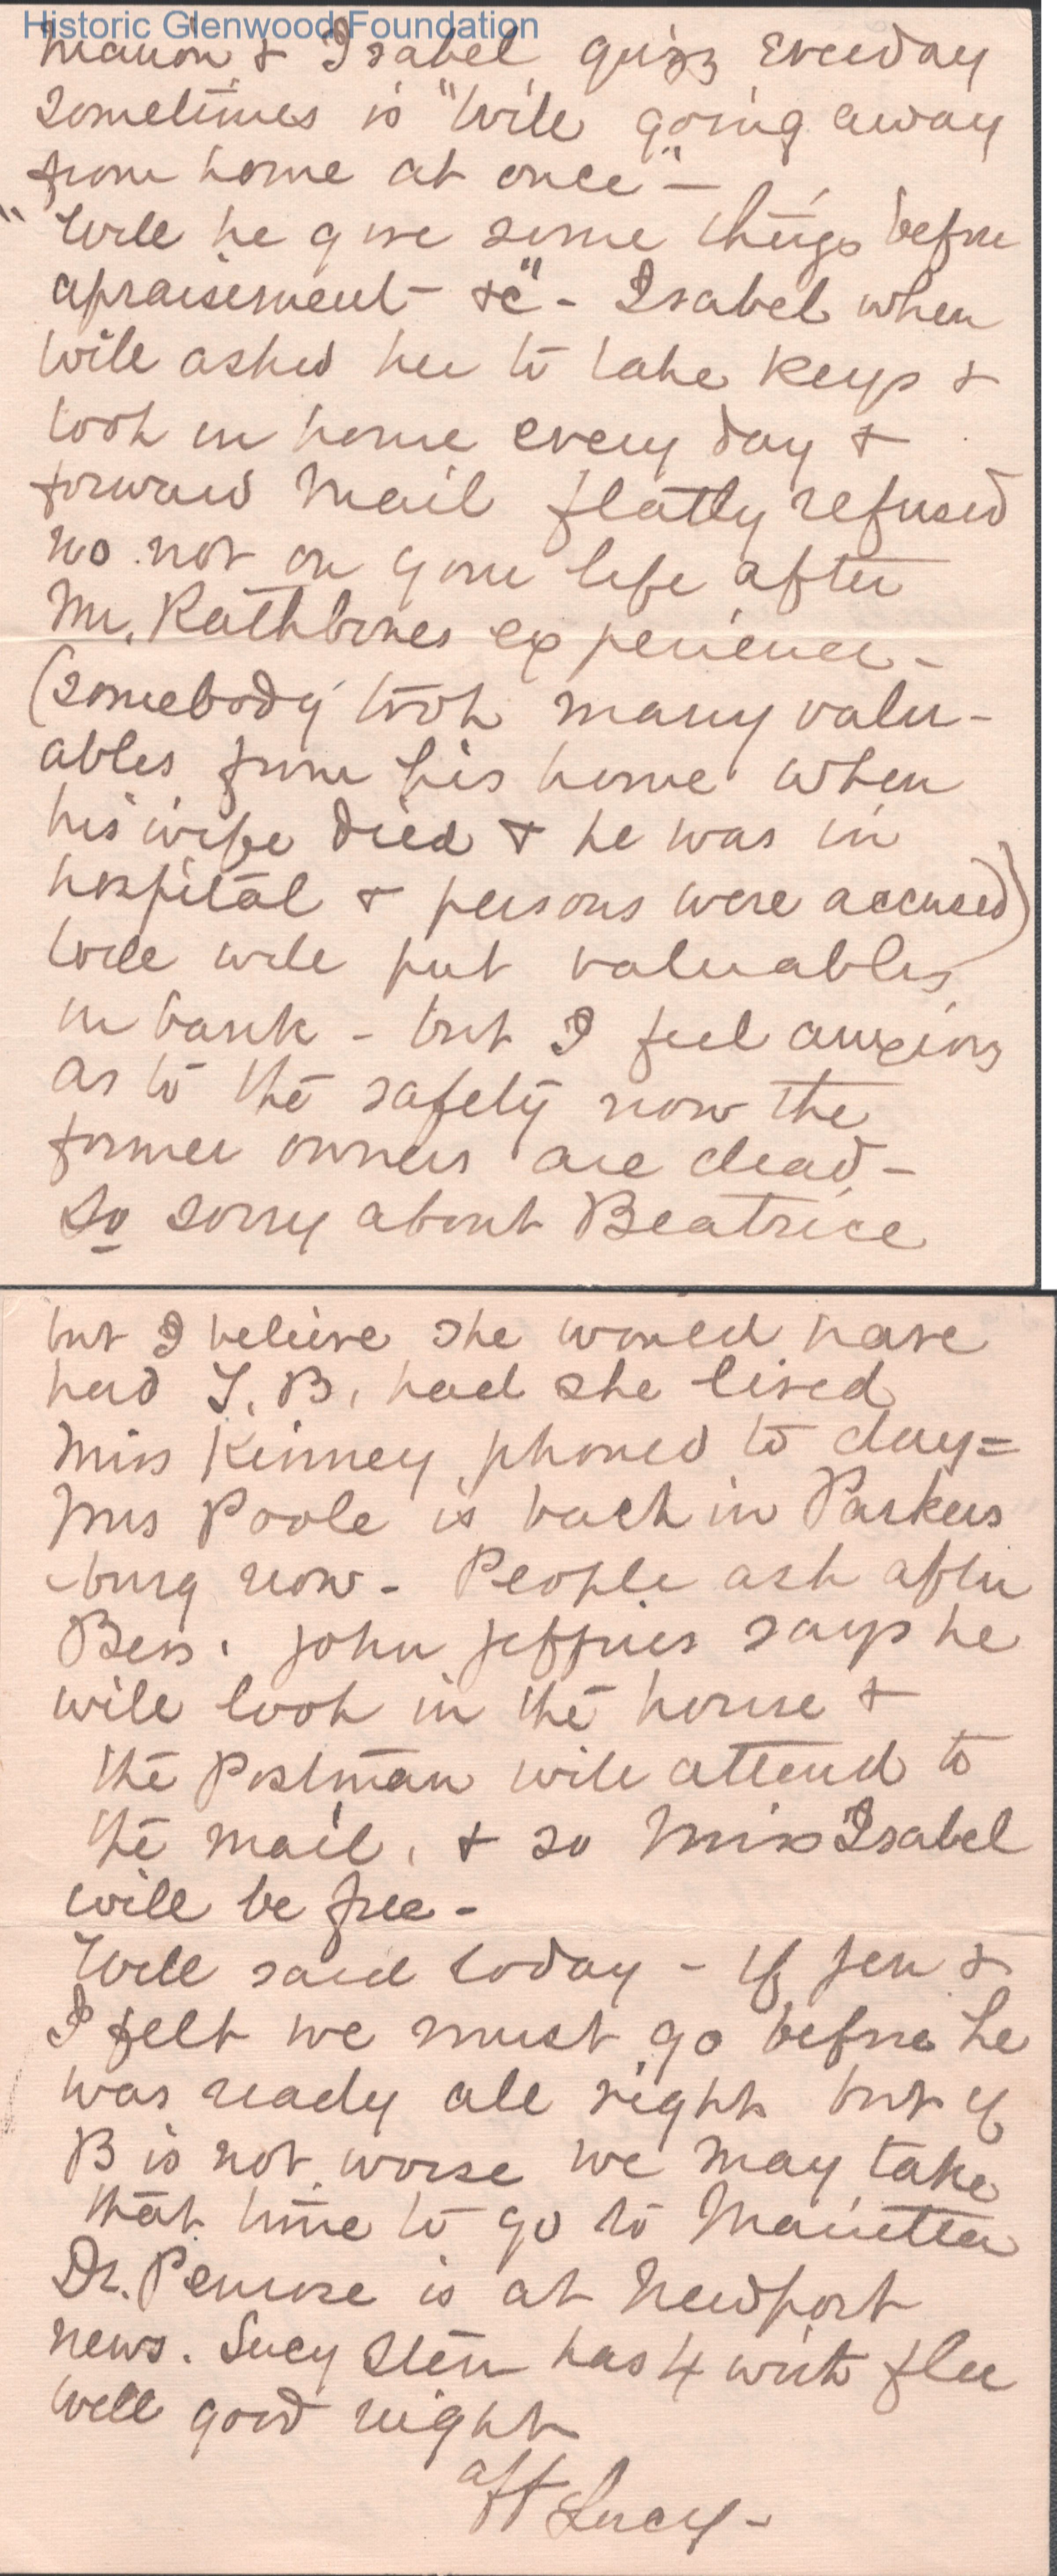 Historic Glenwood Foundation
Marion & Isabel quizz Everyday
Sometimes is "Will going away
from home at once" -
"Will he give some things before
apraisement - &c" - Isabel when
Will asked her to take keys &
look in home every day &
forward mail flatly refused
no not on your life after
Mr. Rathbones experience -
(Somebody took many valu-
ables from his home when
his wife died & he was in
hospital & persons were accused)
Will will put valuables
in bank - but I feel anxious
as to the safety now the
former owners are dead -
So sorry about Beatrice
but I believe she would have
had T.B. had she lived
Miss Kinney phoned to day =
Mrs Poole is back in Parkers
-burg now - People ask after
Bess. John Jeffries says he
will look in the house &
the Postman will attend to
the mail, & so Miss Isabel
will be free -
Will said today - if Jen &
I felt we must go before he
was ready all right but if
B is not worse we may take
that time to go to Marietta
Dr. Penrose is at Newport
news. Lucy has 4 with flu
Well good night
aff Lucy -